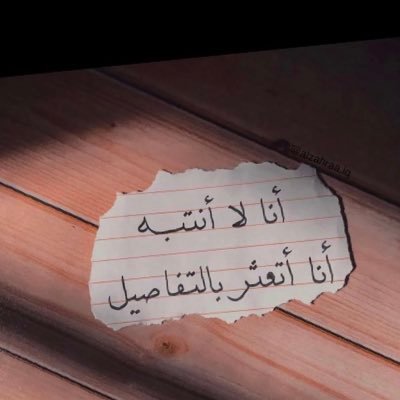 @alzahraa.iq
أنا لا أنتبه
أنا أتعثر بالتفاصيل